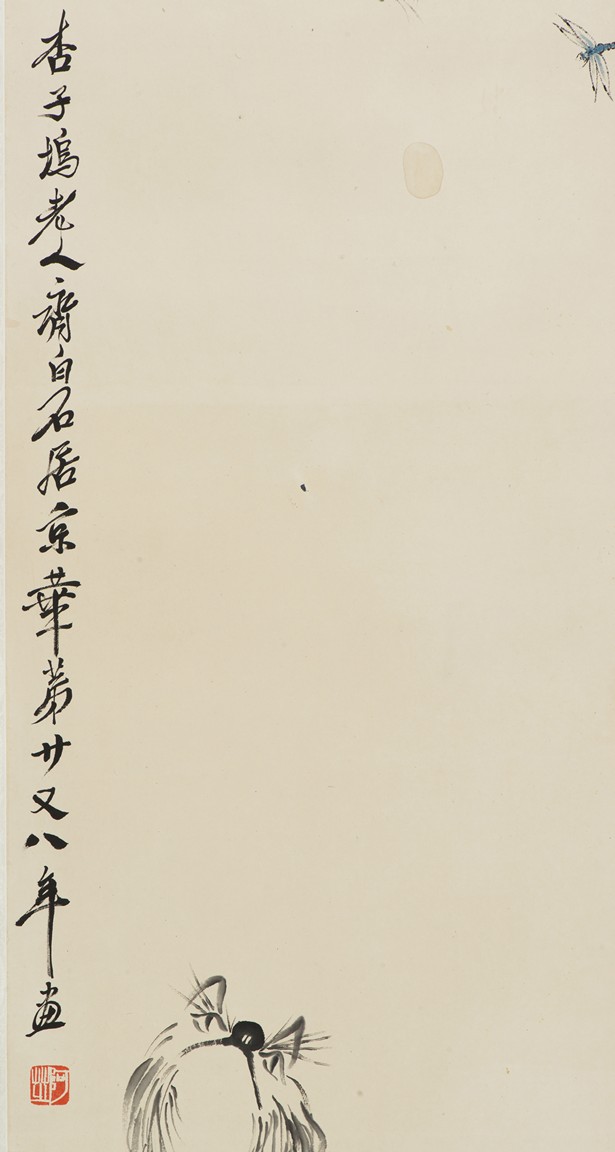 杏子塢老人齊白石居京華第廿又八年畫
阿芝